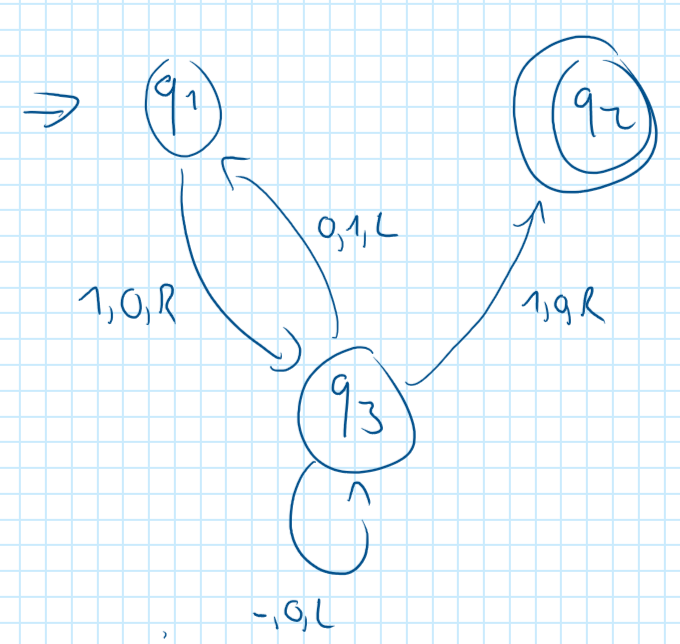 q1
q2
0,1,L
1,0,R
1,9,R
q3
-,0,L